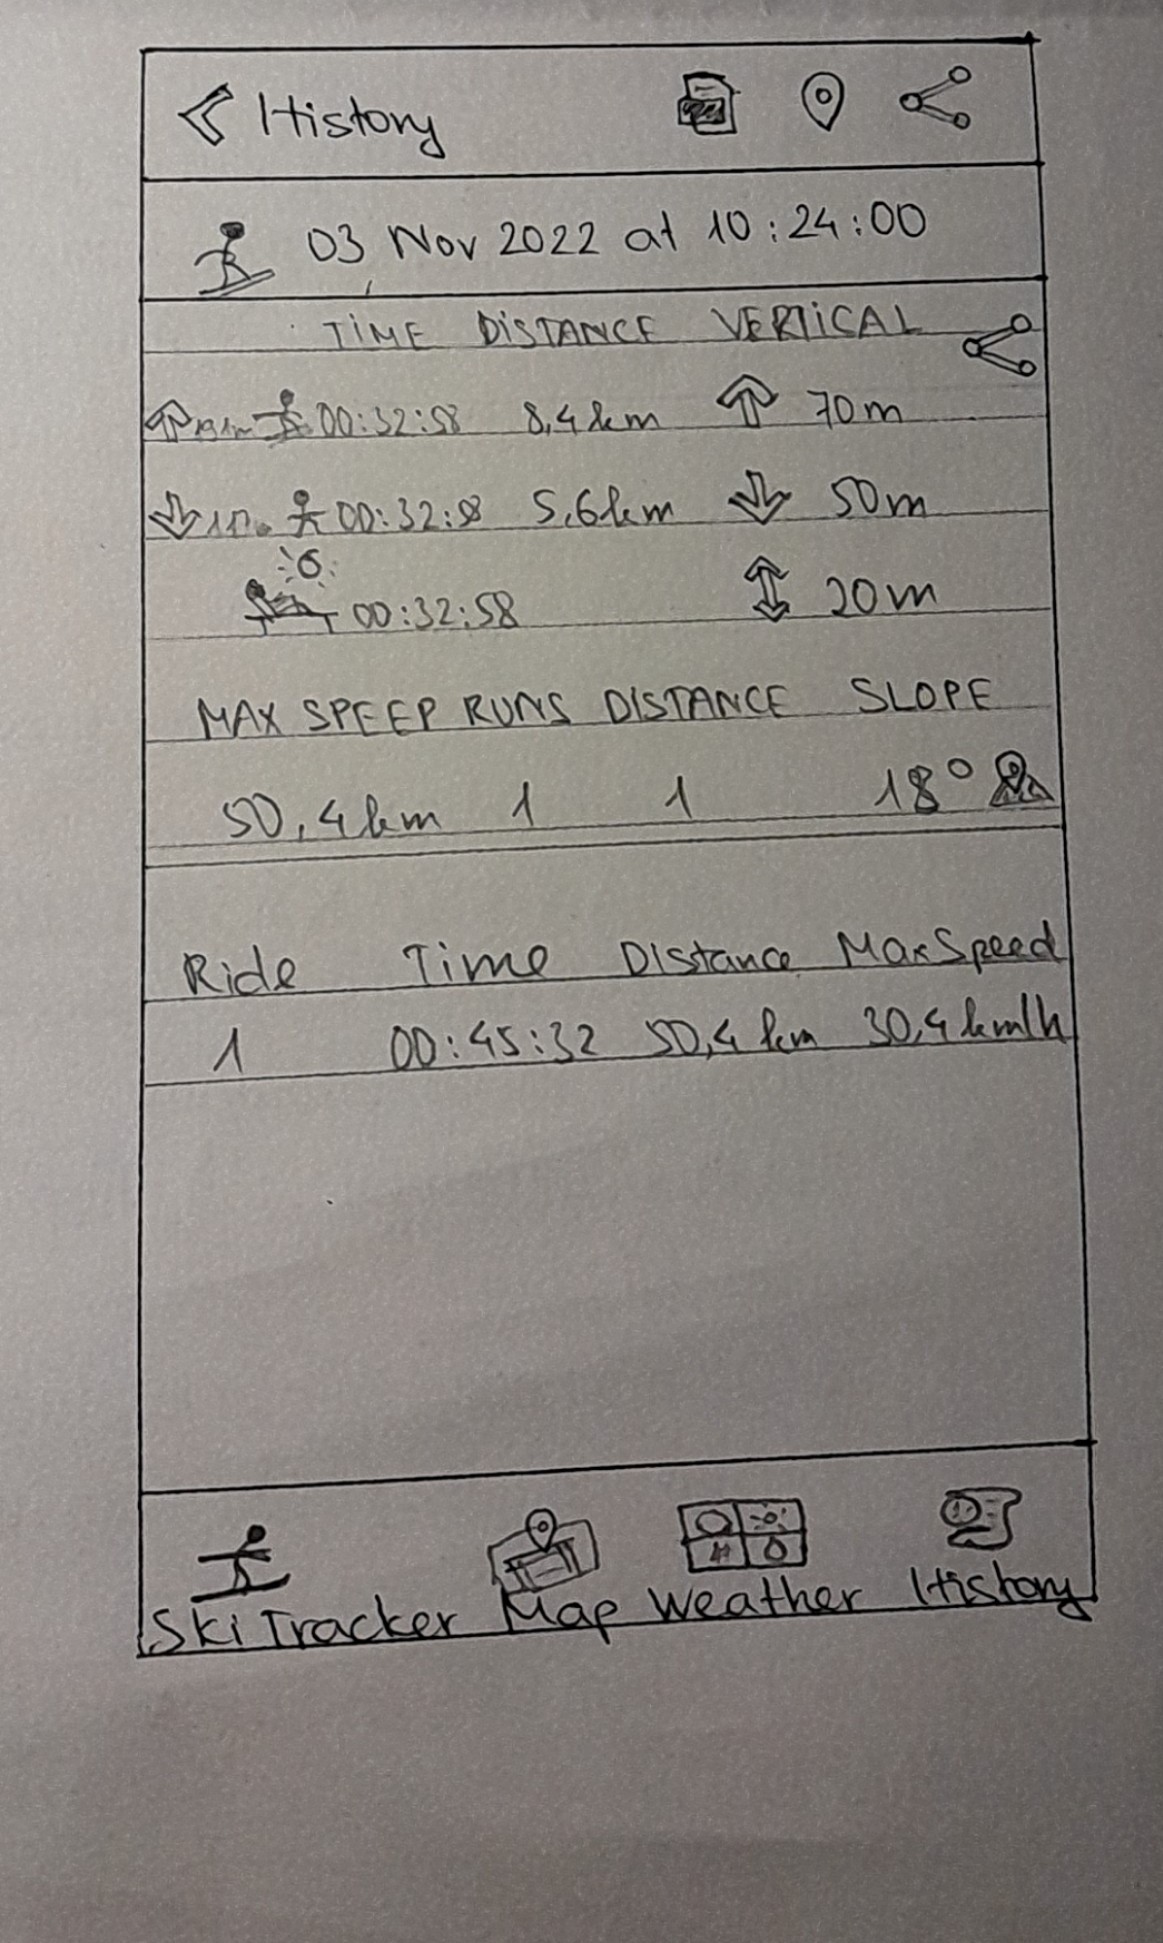 History
03 Nov 2022 at 10:24:00
TIME DISTANCE VERTICAL
00:32:58 8,4km 70m
5,6km 50m
00:32:58 20m
MAX SPEEP RUNS DISTANCE SLOPE
50,4km 1 1 18°
Ride Time Distance MaxSpeed
1 00:45:32 50,4 km 30,4km/h
Ski Tracker Map Weather History